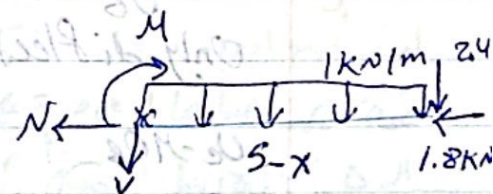 M
1kN/m 2.4
N
5-x
1.8kN
V